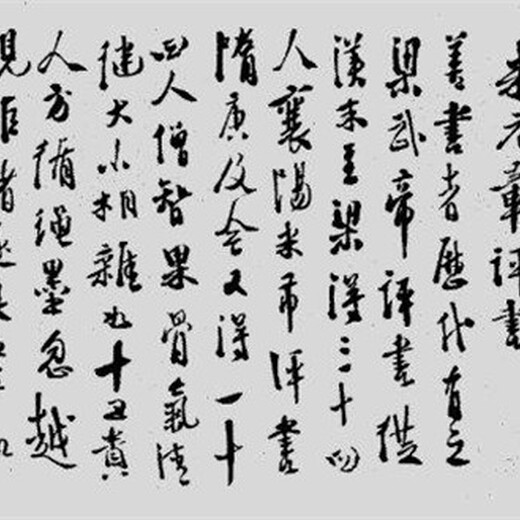 米元章評書
善書者歷代有之
梁武帝評書從
漢末至梁得三十四
人襄陽米芾評書
隋唐及今又得一十
四人僧智果骨氣清
健大小相雜如十五貴
人方循繩墨忽越
規矩褚遂良如